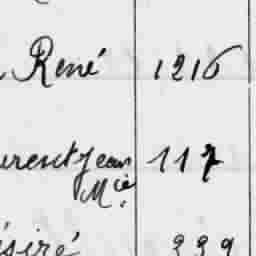 René 1216
urent Jean 117
Mie
ésiré 339